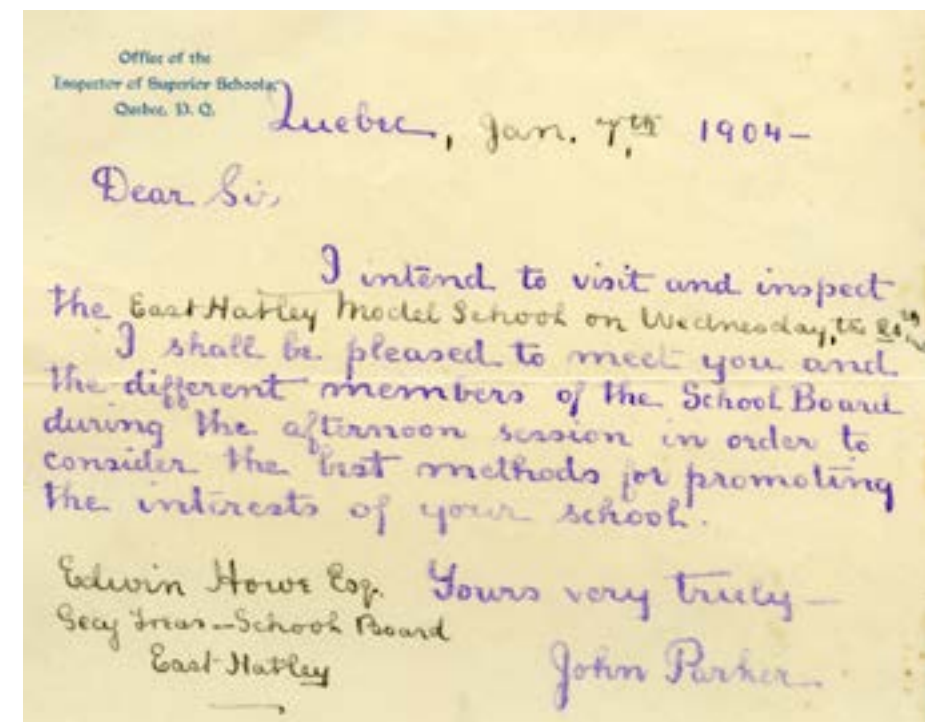 Office of the
Inspector of Superior Schools,
Quebec, P. Q.
Quebec, Jan. 7th, 1904-
Dear Sir,
I intend to visit and inspect
the East Hatley Model School on Wednesday, the 20th
I shall be pleased to meet you and
the different members of the School Board
during the afternoon session in order to
consider the best methods for promoting
the interests of your school.
Edwin Howe Esq. Yours very truly—
Secy Treas—School Board
East Hatley
John Parker